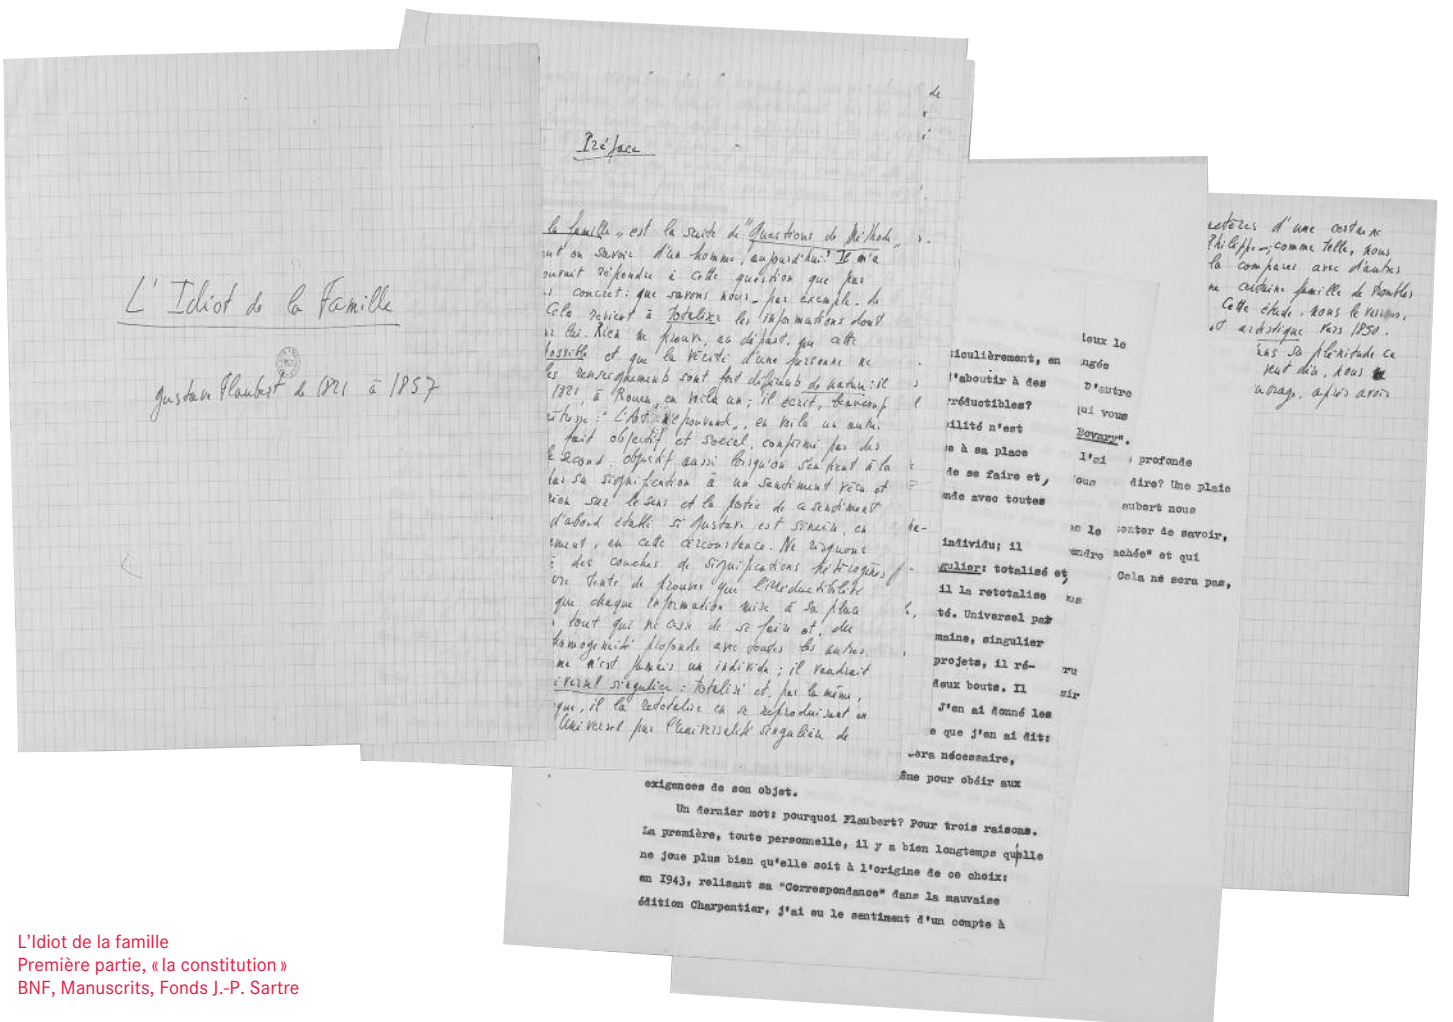 L'Idiot de la Famille
Gustave Flaubert de 1821 à 1857
Préface
de
la famille" est la suite de "Questions de Méthode,
on savoir d'un homme, aujourd'hui? Il m'a
ouvait répondre à cette question que par
concret: que savons nous - par exemple - de
Cela revient à totaliser les informations dont
lui. Rien ne prouve, au départ, que cette
possible et que la vérité d'une personne ne
les renseignements sont fort différents de nature: il
1821, à Rouen, en voilà un; il écrit, beaucoup
"L'Art m'épouvante", en voilà un autre
fait objectif et social, confirmé par des
le second, objectif aussi lorsqu'on s'en tient à la
par sa signification à un sentiment vécu et
rien sur le sens et la portée de ce sentiment
d'abord établi si Gustave est sincère, en
ement, en cette circonstance. Ne risquons
des couches de significations hétérogènes
tente de prouver que l'irréductibilité
que chaque information mise à sa place
tout qui ne cesse de se faire et, du
homogénéité profonde avec toutes les autres.
me n'est jamais un individu; il vaudrait
iversel singulier: totalisé et, par là même,
que, il la retotalise en se reproduisant en
Universel par l'universalité singulière de
iculièrement, en
d'aboutir à des
rréductibles?
ilité n'est
e à sa place
de se faire et,
nde avec toutes
individu; il
gulier: totalisé et,
il la retotalise
té. Universel par
maine, singulier
projets, il ré-
deux bouts. Il
J'en ai donné les
e que j'en ai dit:
era nécessaire,
ême pour obéir aux
exigences de son objet.
Un dernier mot: pourquoi Flaubert? Pour trois raisons.
La première, toute personnelle, il y a bien longtemps qu'elle
ne joue plus bien qu'elle soit à l'origine de ce choix:
en 1943, relisant sa "Correspondance" dans la mauvaise
édition Charpentier, j'ai eu le sentiment d'un compte à
ieux le
ngée
D'autre
qui vous
Bovary".
l'ai
ous
le
endre
ru
sir
profonde
dire? Une plaie
aubert nous
enter de savoir,
achée" et qui
Cela ne sera pas,
actères d'une certaine
Philippe -; comme telle, nous
la comparer avec d'autres
ne certaine famille de troubles
Cette étude, nous le verrons,
artistique vers 1850.
ans sa plénitude ce
dit, nous
ouvrage, après avoir
L'Idiot de la famille
Première partie, « la constitution »
BNF, Manuscrits, Fonds J.-P. Sartre